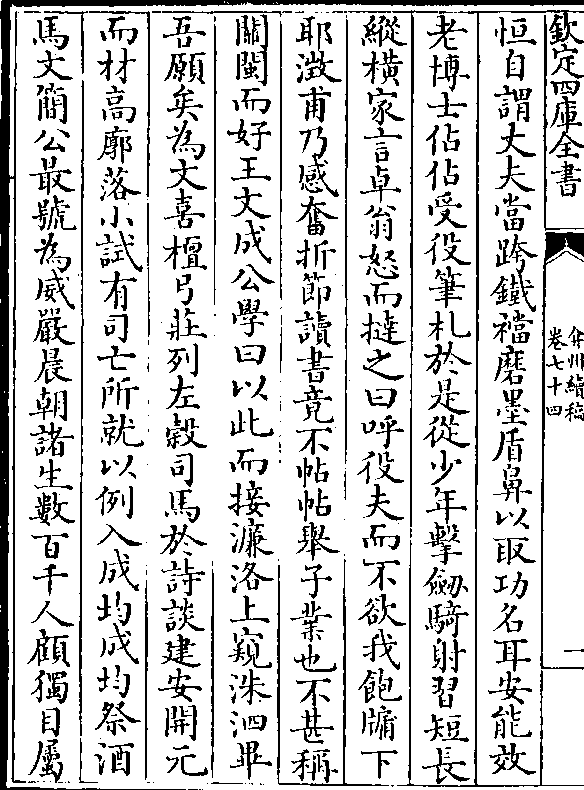 欽定四庫全書
弇州續稿
卷七十四
一
恒自謂丈夫當跨鐵襠磨墨盾鼻以取功名耳安能效
老博士佔佔受役筆札於是從少年擊劒騎射習短長
縱橫家言卓翁怒而撻之曰呼役夫而不欲我飽牖下
耶澂甫乃感奮折節讀書竟不帖帖舉子業也不甚稱
關閩而好王文成公學曰以此而接濂洛上窺洙泗畢
吾願矣為文喜檀弓莊列左穀司馬於詩談建安開元
而材高廓落小試有司亡所就以例入成均成均祭酒
馬文簡公最號為威嚴晨朝諸生數百千人顧獨目屬